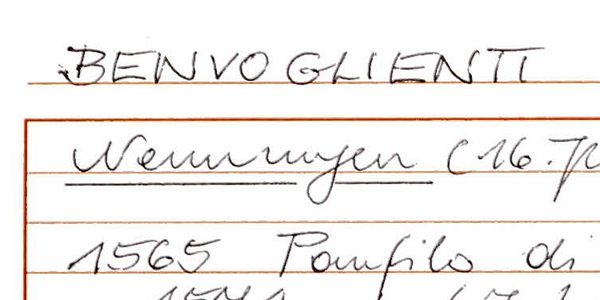 BENVOGLIENTI
Nennungen (16.
1565 Panfilo di